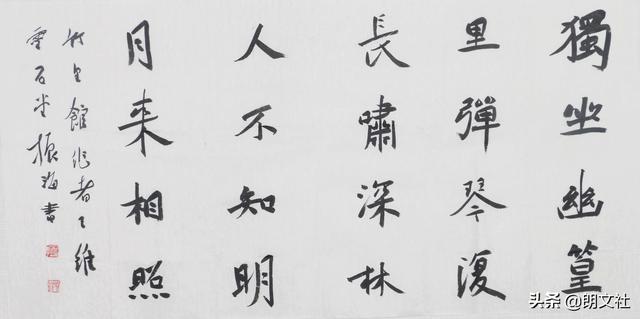 獨坐幽篁
里彈琴復
長嘯深林
人不知明
月来相照
竹里館作者王維
石堂振海書
头条 @朗文社